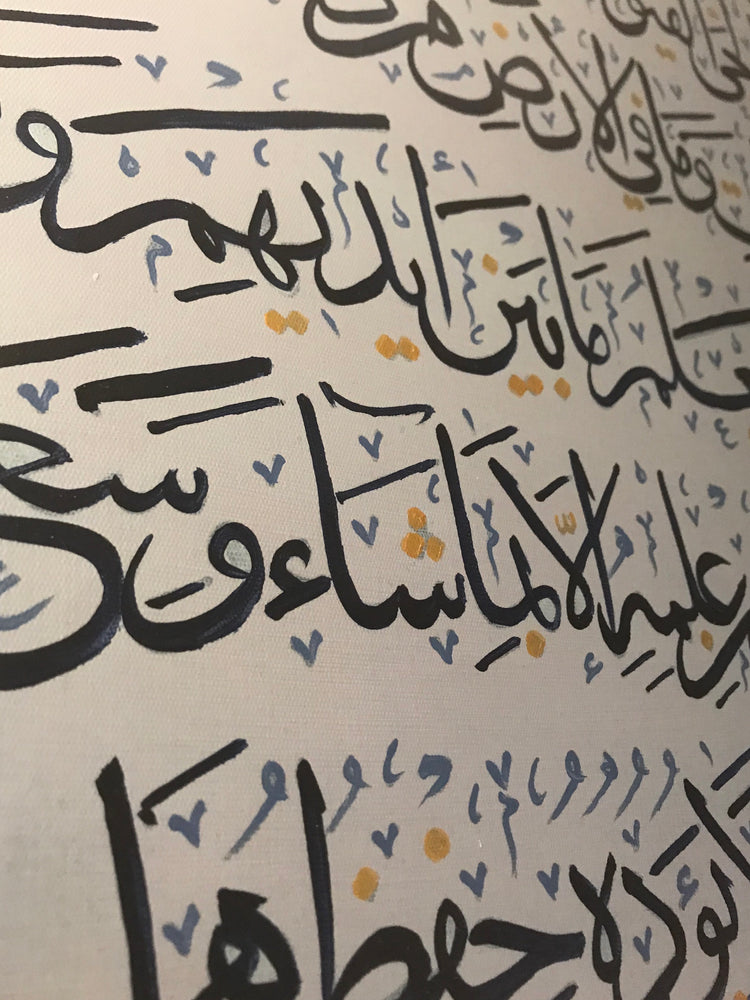 وَمَا فِي الْأَرْضِ مَن
يَعْلَمُ مَا بَيْنَ أَيْدِيهِمْ وَ
عِلْمِهِ إِلَّا بِمَا شَاءَ وَسِعَ
يَئُودُهُ حِفْظُهُمَا